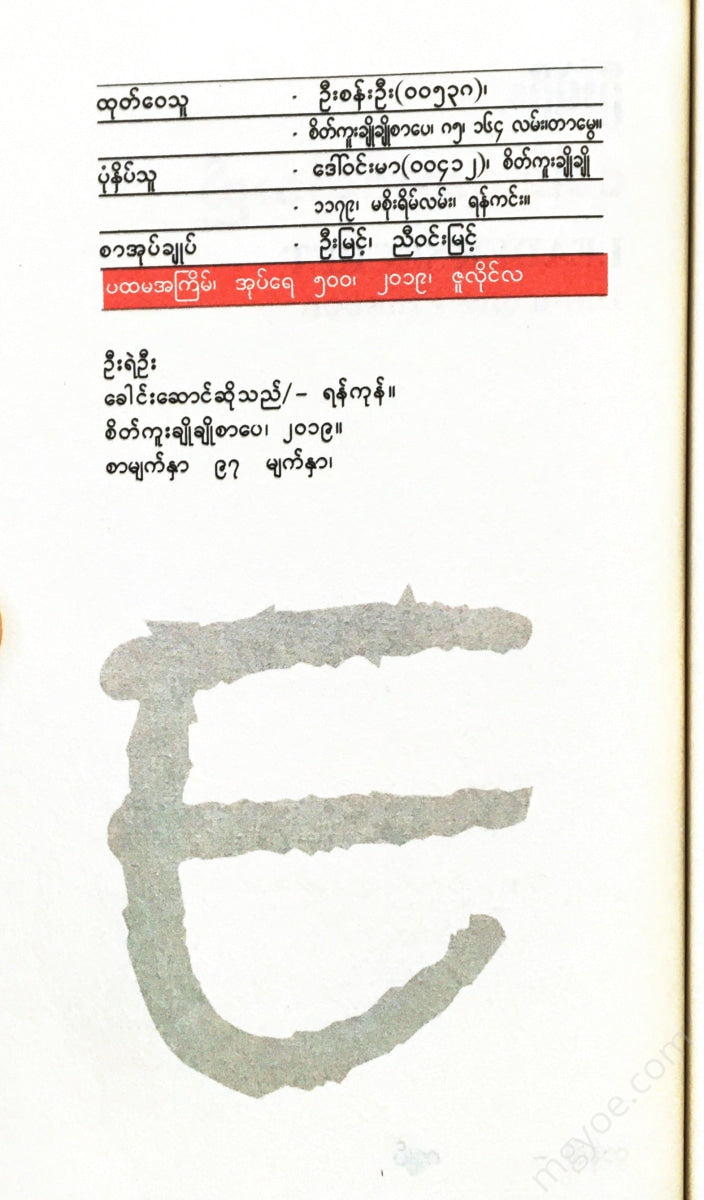 ထုတ်ဝေသူ - ဦးစန်းဦး(၀၀၅၃၈)၊
- စိတ်ကူးချိုချိုစာပေ၊ ၈၅၊ ၁၆၄ လမ်း၊တာမွေ။
ပုံနှိပ်သူ - ဒေါ်ဝင်းမာ(၀၀၄၁၂)၊ စိတ်ကူးချိုချို
- ၁၁၇၉၊ မစိုးရိမ်လမ်း၊ ရန်ကင်း။
စာအုပ်ချုပ် - ဦးမြင့်၊ ညီဝင်းမြင့်
ပထမအကြိမ်၊ အုပ်ရေ ၅၀၀၊ ၂၀၁၉၊ ဇူလိုင်လ
ဦးရဲဦး
ခေါင်းဆောင်ဆိုသည်/- ရန်ကုန်။
စိတ်ကူးချိုချိုစာပေ၊ ၂၀၁၉။
စာမျက်နှာ ၉၇ မျက်နှာ၊
E
mgyoe.com